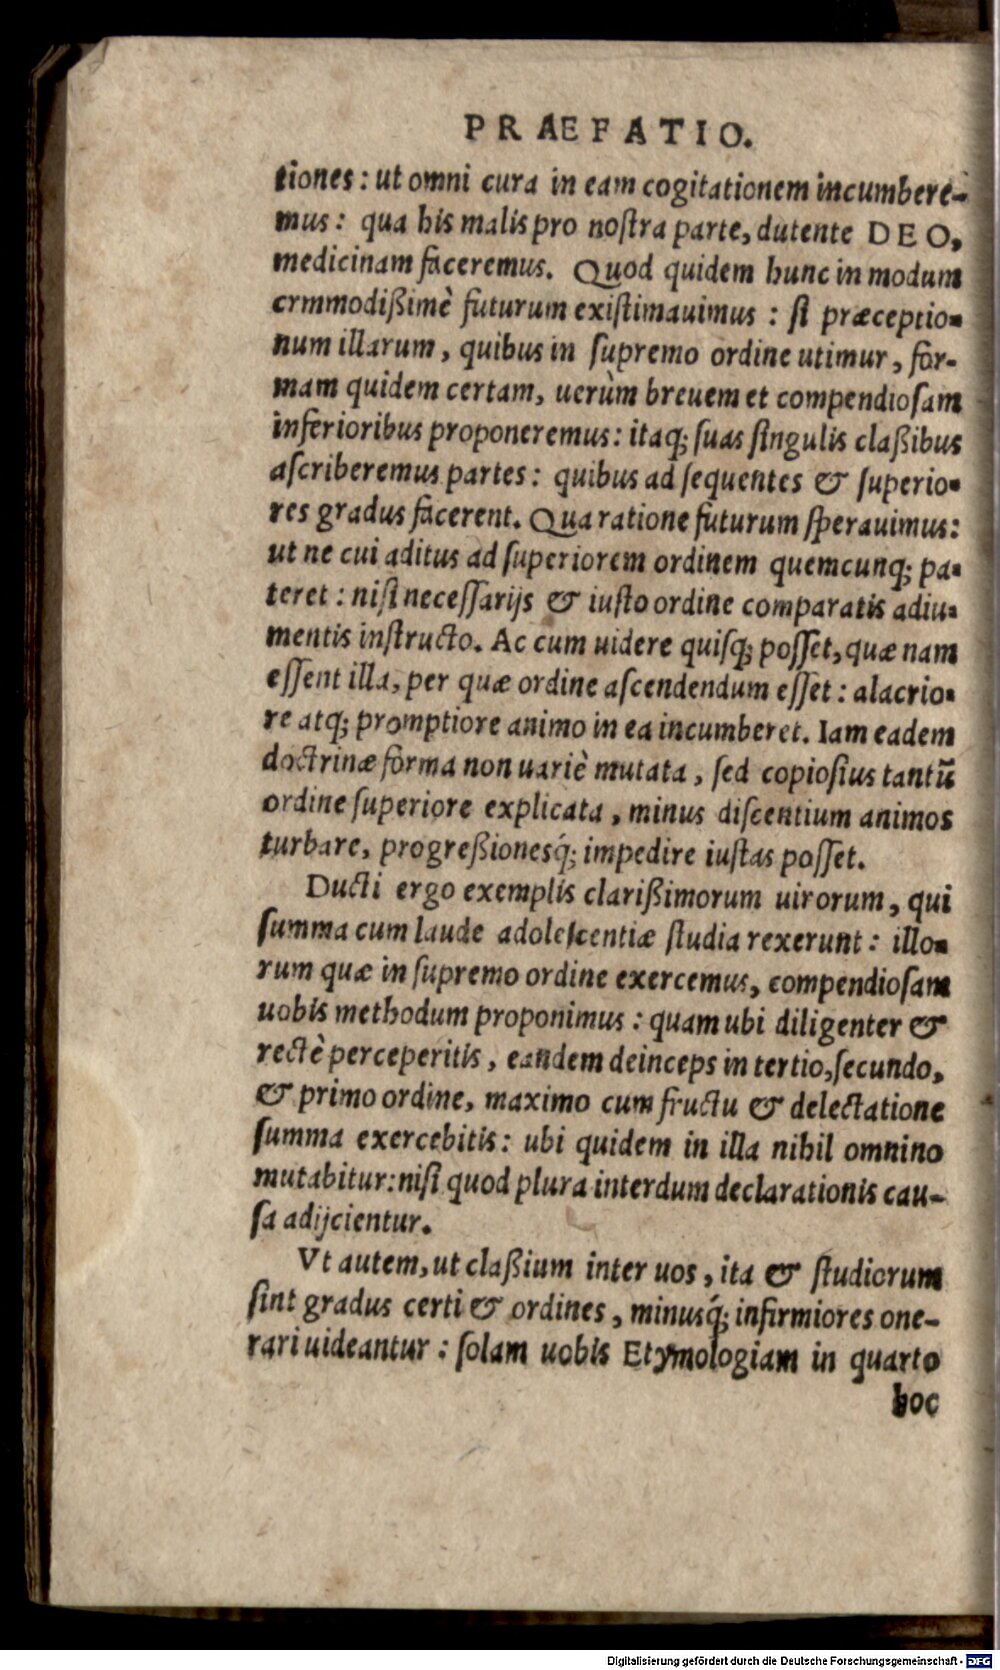 PRAEFATIO.
tiones: ut omni cura in eam cogitationem incumbere-
mus: qua his malis pro noſtra parte, dutente DEO,
medicinam faceremus. Quod quidem hunc in modum
crmmodißimè futurum exiſtimauimus: ſi præceptio-
num illarum, quibus in ſupremo ordine utimur, for-
mam quidem certam, uerùm breuem et compendioſam
inferioribus proponeremus: itaq; ſuas ſingulis claßibus
aſcriberemus partes: quibus ad ſequentes & ſuperio-
res gradus facerent. Qua ratione futurum ſperauimus:
ut ne cui aditus ad ſuperiorem ordinem quemcunq; pa-
teret: niſi neceſſarijs & iuſto ordine comparatis adiu-
mentis inſtructo. Ac cum uidere quiſq; poſſet, quæ nam
eſſent illa, per quæ ordine aſcendendum eſſet: alacrio-
re atq; promptiore animo in ea incumberet. Iam eadem
doctrinæ forma non uariè mutata, ſed copioſius tantũ
ordine ſuperiore explicata, minus diſcentium animos
turbare, progreßionesq́; impedire iuſtas poſſet.
Ducti ergo exemplis clarißimorum uirorum, qui
ſumma cum laude adoleſcentiæ ſtudia rexerunt: illo-
rum quæ in ſupremo ordine exercemus, compendioſam
uobis methodum proponimus: quam ubi diligenter &
rectè perceperitis, eandem deinceps in tertio, ſecundo,
& primo ordine, maximo cum fructu & delectatione
ſumma exercebitis: ubi quidem in illa nihil omnino
mutabitur: niſi quod plura interdum declarationis cau-
ſa adijcientur.
Vt autem, ut claßium inter uos, ita & ſtudiorum
ſint gradus certi & ordines, minusq́; infirmiores one-
rari uideantur: ſolam uobis Etymologiam in quarto
hoc
Digitalisierung gefördert durch die Deutsche Forschungsgemeinschaft - DFG